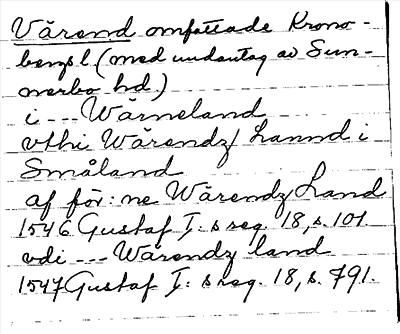 Värend omfattade Krono-
bergs l. (med undantag av Sun-
nerbo hd.)
i --- Wärneland
vthi Wärendz Lannd i
Småland
af för:ne Wärendz Land
1546 Gustaf I:s reg. 18, s. 101.
vdi --- Wärendz land
1547 Gustaf I:s reg. 18, s. 791.